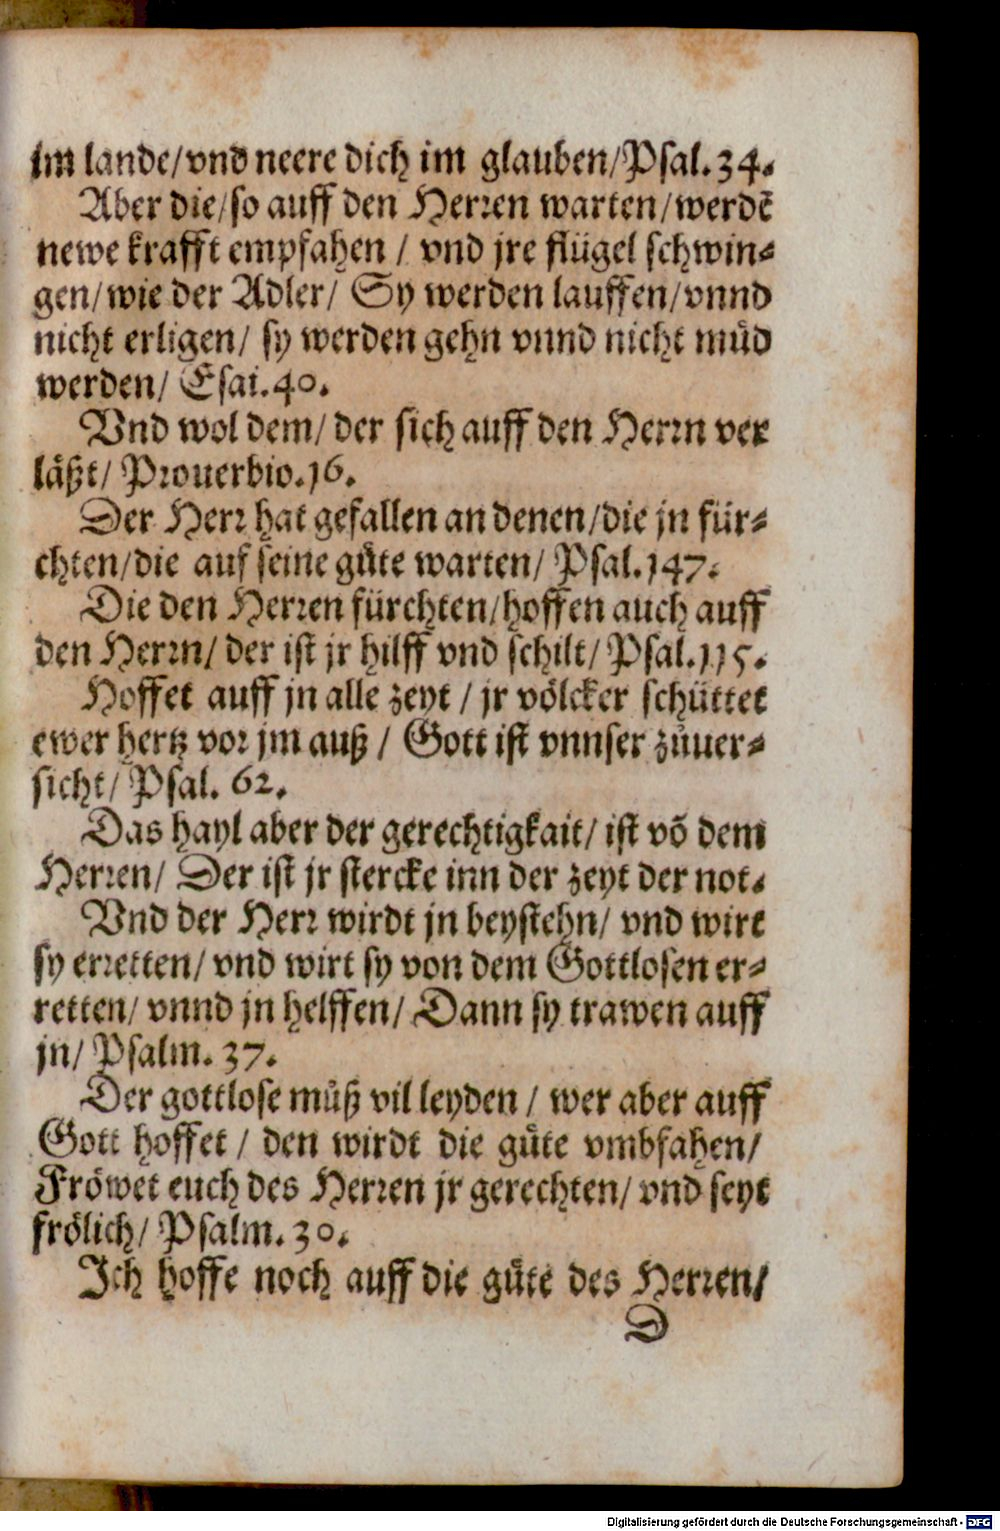 im lande/vnd neere dich im glauben/Psal.34.
Aber die/so auff den Herren warten/werdē
newe krafft empfahen / vnd jre flügel schwin-
gen/wie der Adler/ Sy werden lauffen/vnnd
nicht erligen/ sy werden gehn vnnd nicht muͤd
werden/ Esai.40.
Vnd wol dem/ der sich auff den Herrn ver
läßt/ Prouerbio.16.
Der Herr hat gefallen an denen/die jn für-
chten/die auf seine guͤte warten/ Psal.147.
Die den Herren fürchten/hoffen auch auff
den Herrn/ der ist jr hilff vnd schilt/ Psal.115.
Hoffet auff jn alle zeyt / jr völcker schüttet
ewer hertz vor jm auß / Gott ist vnnser zůuer-
sicht/ Psal. 62.
Das hayl aber der gerechtigkait/ ist vō dem
Herren/ Der ist jr stercke inn der zeyt der not.
Vnd der Herr wirdt jn beystehn/ vnd wirt
sy erretten/ vnd wirt sy von dem Gottlosen er-
retten/ vnnd jn helffen/ Dann sy trawen auff
jn/ Psalm. 37.
Der gottlose můß vil leyden / wer aber auff
Gott hoffet / den wirdt die guͤte vmbfahen/
Fröwet euch des Herren jr gerechten/ vnd seyt
frölich/ Psalm. 30.
Ich hoffe noch auff die guͤte des Herren/
D
Digitalisierung gefördert durch die Deutsche Forschungsgemeinschaft - DFG